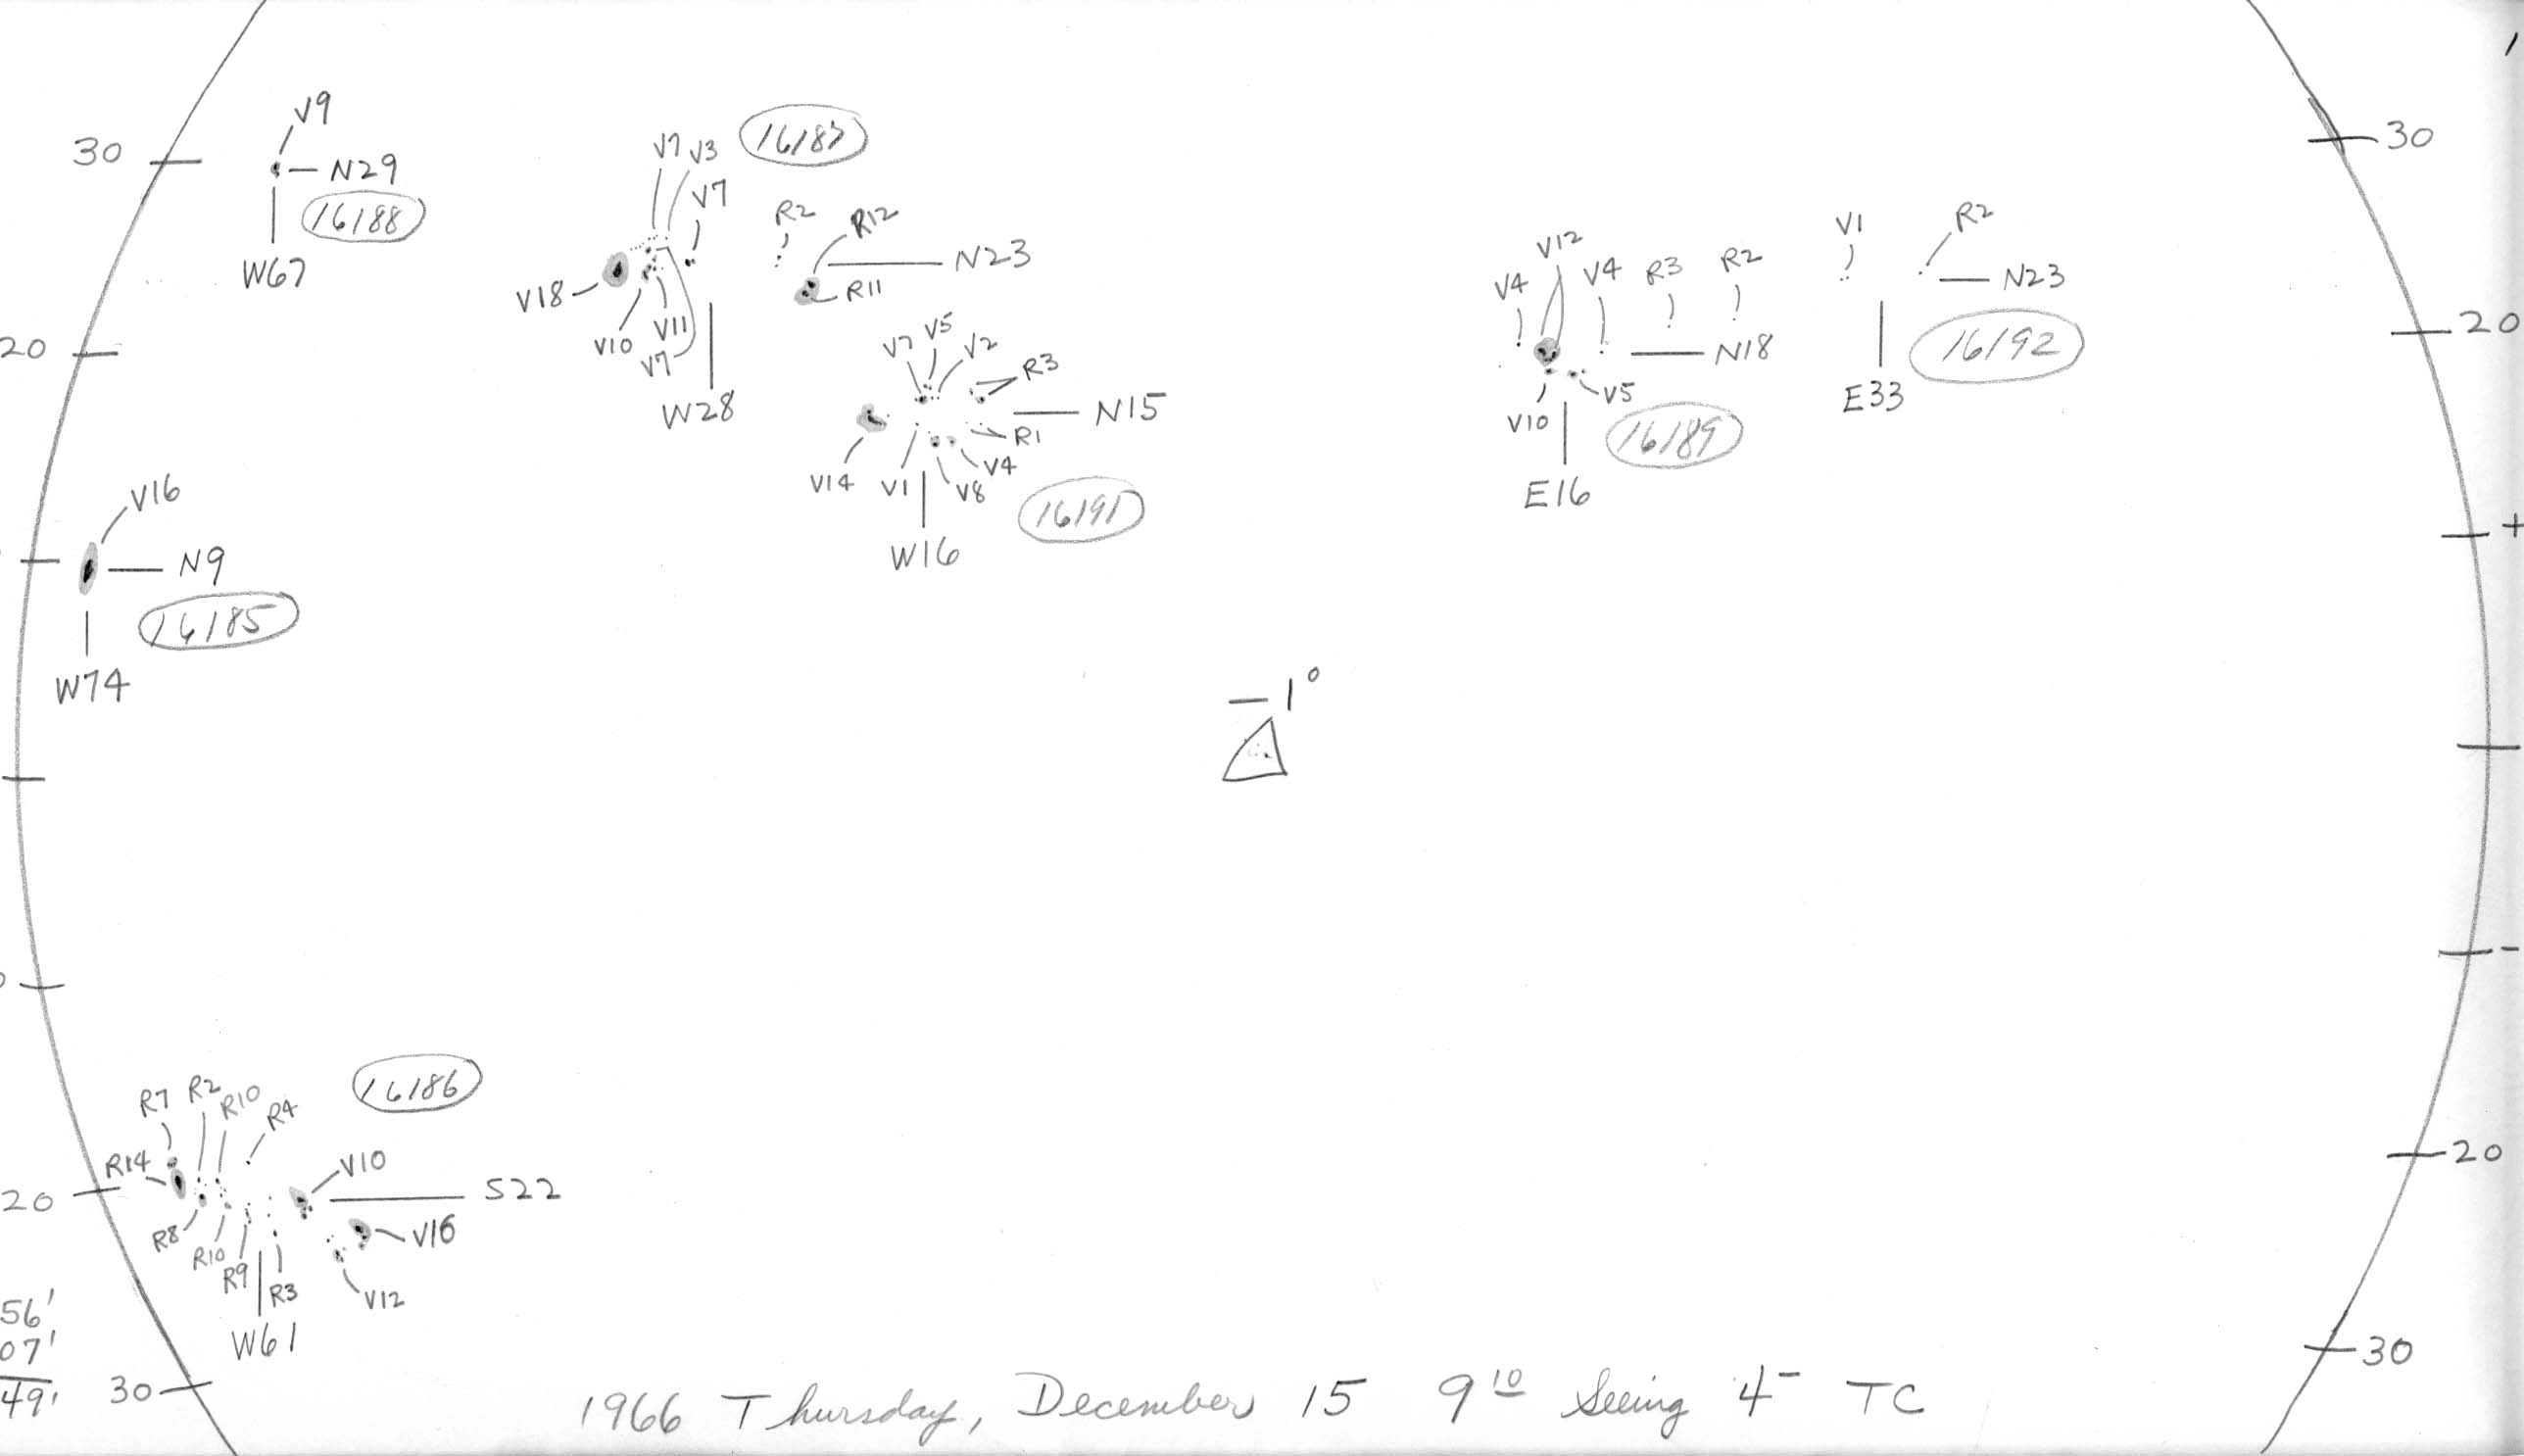 V9
30
N29
16188
W67
V7 V3
16187
V7
R2
R12
N23
R11
V18
V10
V11
V7
W28
V7
V5
V2
R3
N15
R1
V4
V8
V1
V14
16191
W16
V12
V4
V4
R3
R2
N18
V5
V10
16189
E16
V1
R2
N23
16192
E33
30
20
20
+
V16
N9
16185
W74
-1°
-
R7 R2 R10 R4
16186
R14
V10
S22
20
R8
R10
R9
R3
V16
V12
W61
56'
07'
49'
30
20
30
1966 Thursday, December 15 9 10 Seeing 4- TC